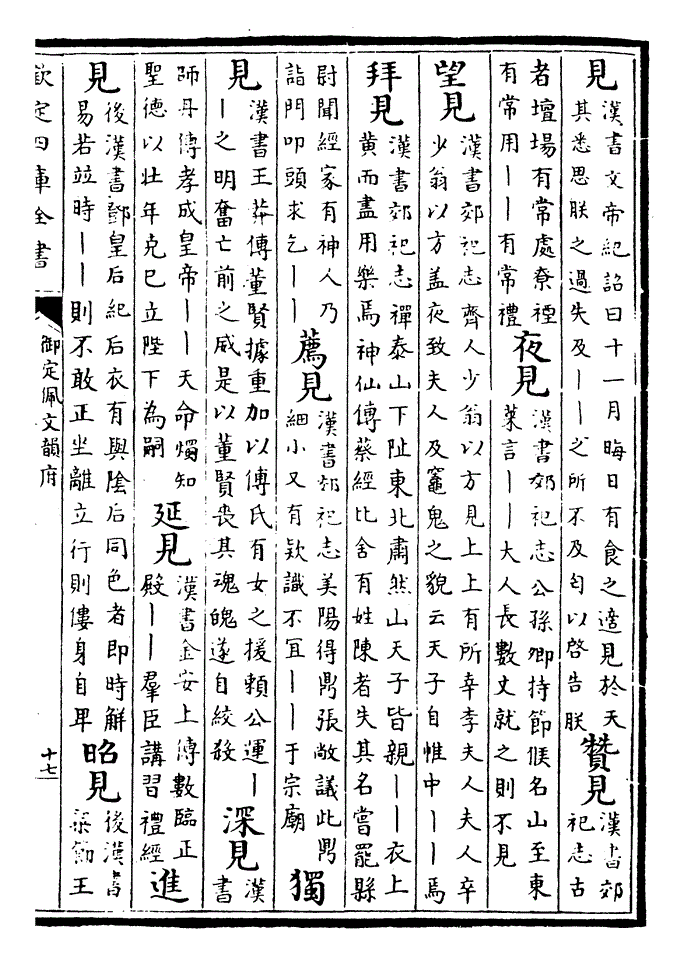 見漢書文帝紀詔曰十一月晦日有食之適見於天
其悉思朕之過失及丨丨之所不及匄以啓告朕
贊見漢書郊
祀志古
者壇場有常處尞禋
有常用丨丨有常禮
夜見漢書郊祀志公孫卿持節候名山至東
萊言丨丨大人長數丈就之則不見
望見漢書郊祀志齊人少翁以方見上上有所幸李夫人夫人卒
少翁以方盖夜致夫人及竈鬼之貌云天子自惟中丨丨焉
拜見漢書郊祀志禪泰山下阯東北肅然山天子皆親丨丨衣上
黄而盡用樂焉神仙傳蔡經比舍有姓陳者失其名嘗罷縣
尉聞經家有神人乃
詣門叩頭求乞丨丨
薦見漢書郊祀志美陽得鼎張敞議此鼎
細小又有欵識不宜丨丨于宗廟
獨
見漢書王莽傳董賢據重加以傅氏有女之援賴公運丨
丨之明奮亡前之威是以董賢喪其魂魄遂自絞殺
深見漢
書
師丹傳孝成皇帝丨丨天命燭知
聖德以壮年克已立陛下為嗣
延見漢書金安上傳數臨正
殿丨丨羣臣講習禮經
進
見後漢書鄧皇后紀后衣有與陰后同色者即時解
易若竝時丨丨則不敢正坐離立行則僂身自卑
昭見後漢書
梁節王
欽定四庫全書
御定佩文韻府
十七